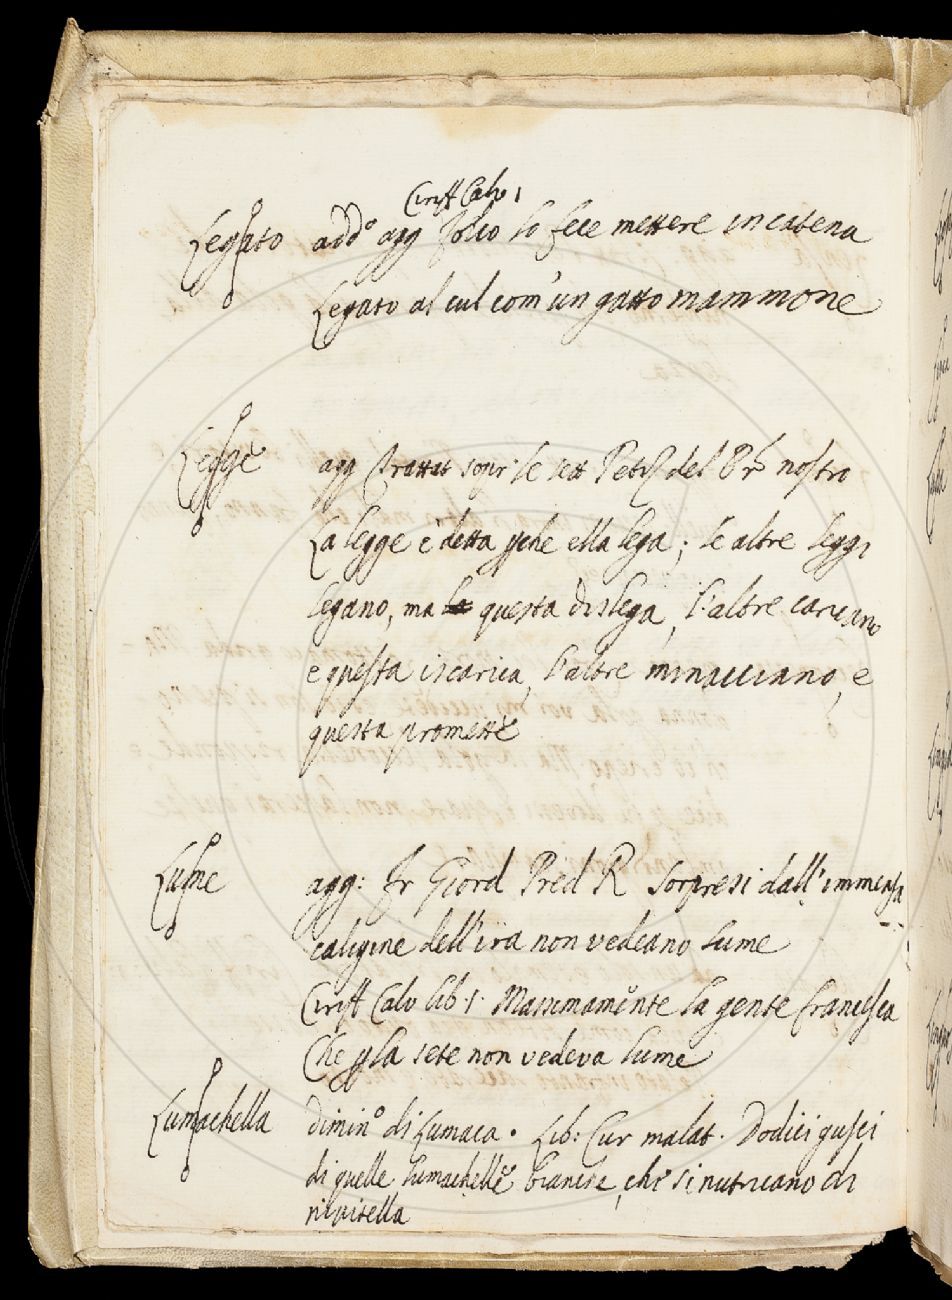 Ciriff Calv 1
Legato add.o agg Folco lo fece mettere in catena
Legato al cul com'un gatto mammone
Legge agg Trattat sopr: le sett Petiz del Pr nostro
La legge è detta pche ella lega; le altre leggi
legano, ma questa dislega, l'altre caricano
e questa iscarica, l'altre minacciano, e
questa promette
Lume agg: Fr Giord Pred R Sorpresi dall'immensa
caligine dell'ira non vedeano lume
Ciriff Calv lib: 1: Massimamente la gente francesca
Che p la sete non vedeva lume
Lumachella dimin.o di Lumaca. Lib: Cur malat. Dodici gusci
di quelle lumachelle bianche, che si nutricano di
nipitella